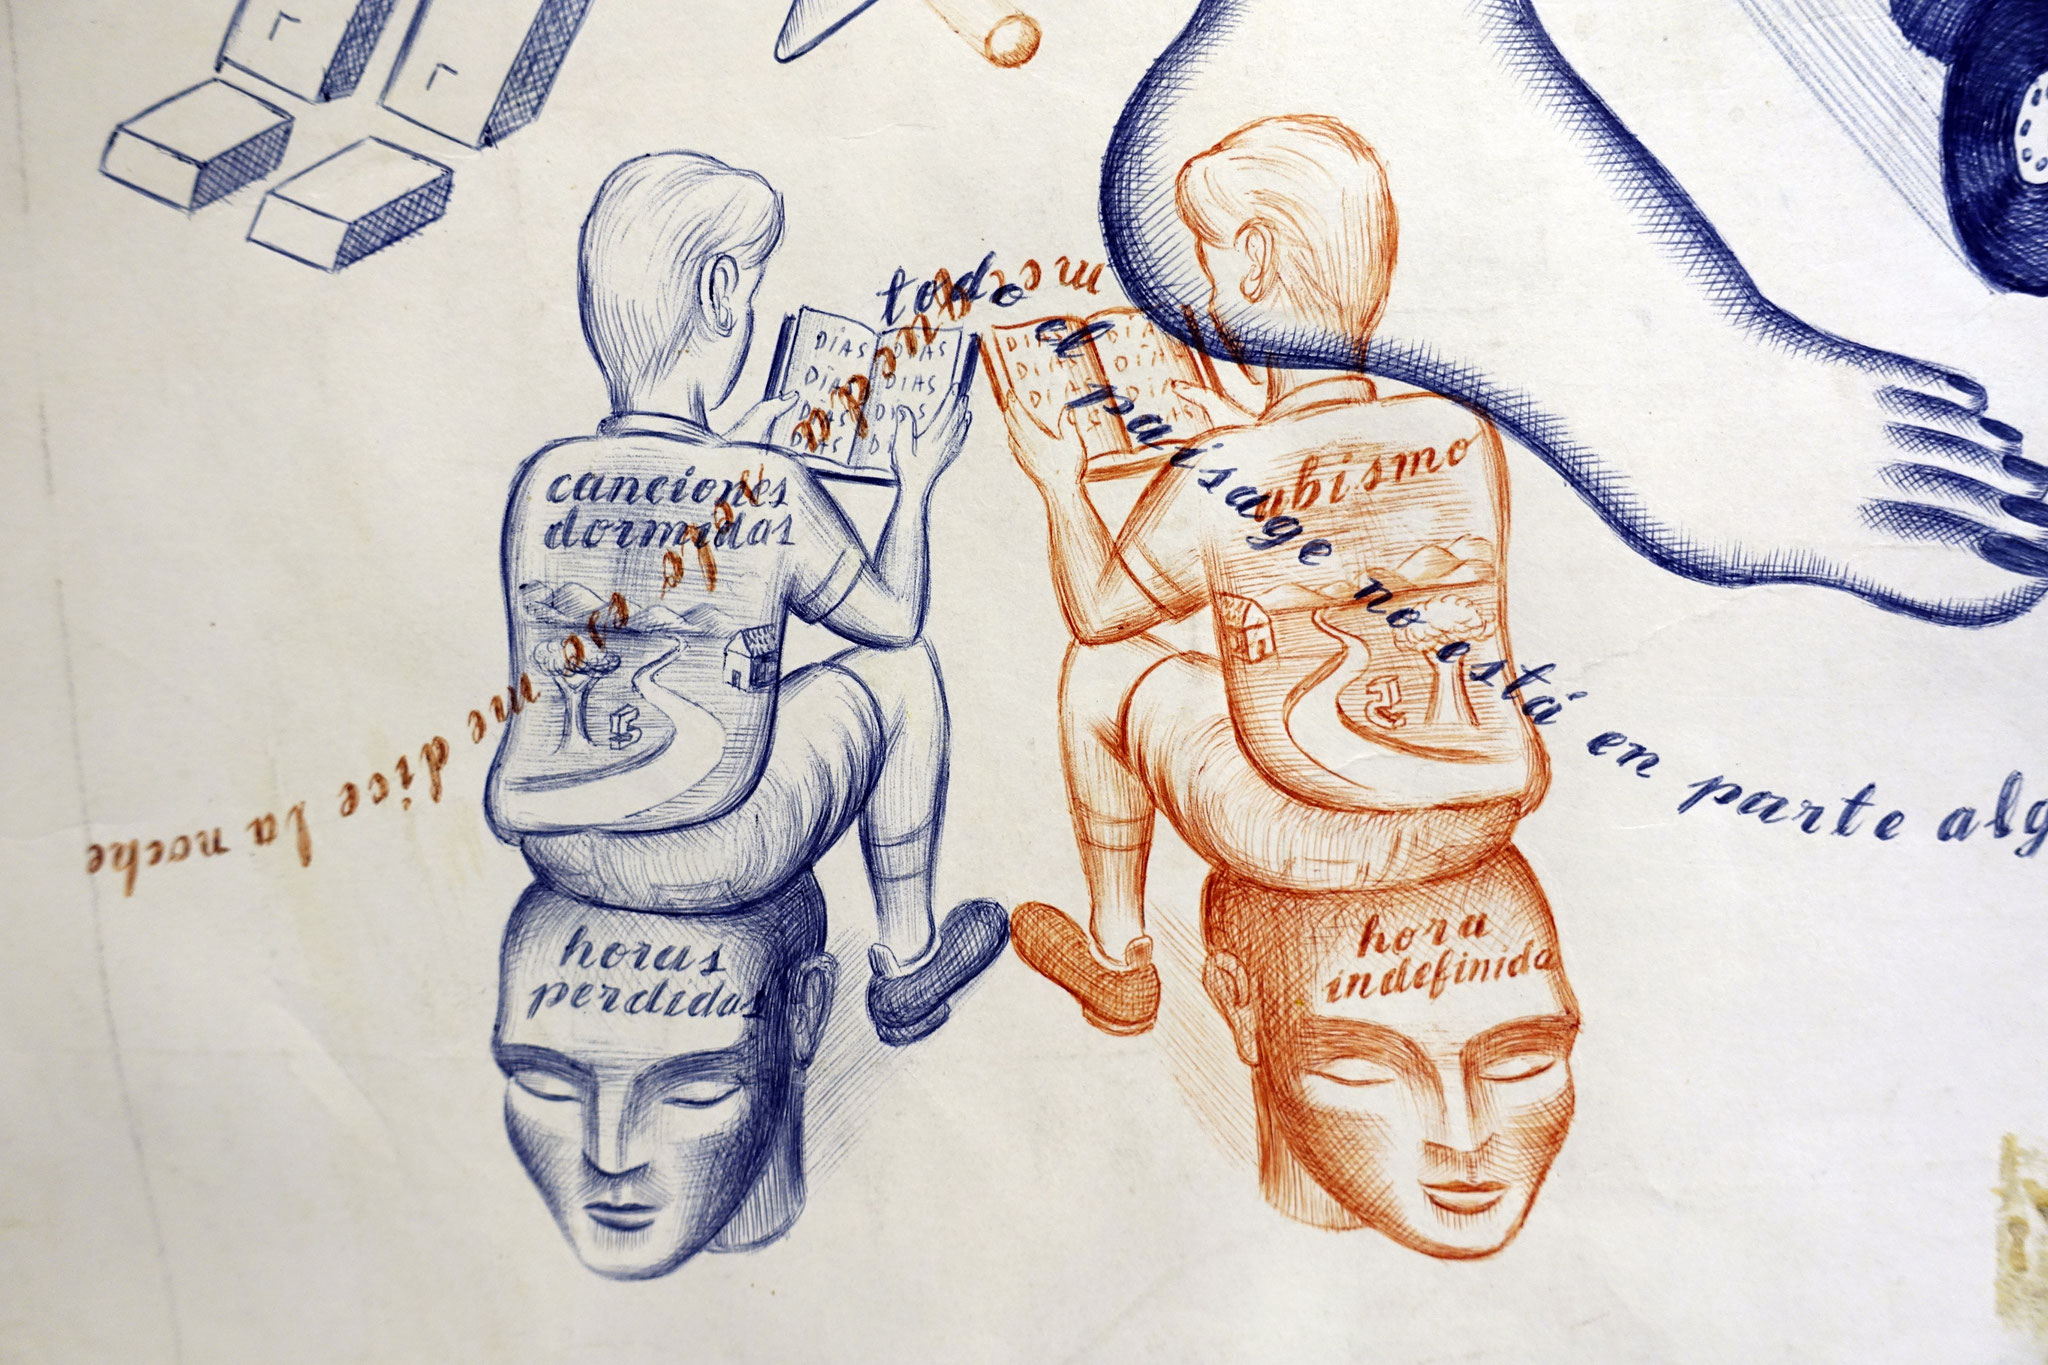 todo el paisage no está en parte alg
me dice la noche
DÍAS DÍAS
DÍAS DÍAS
DÍAS DÍAS
DÍAS
DÍAS DÍAS
DÍAS DÍAS
canciones
dormidas
abismo
horas
perdidas
hora
indefinida